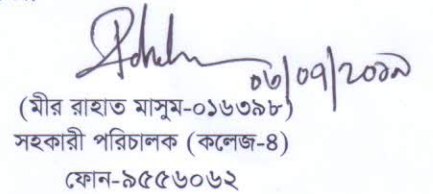 ০৬/০৭/২০১৯
(মীর রাহাত মাসুম-০১৬৩৯৮)
সহকারী পরিচালক (কলেজ-৪)
ফোন-৯৫৫৬০৬২